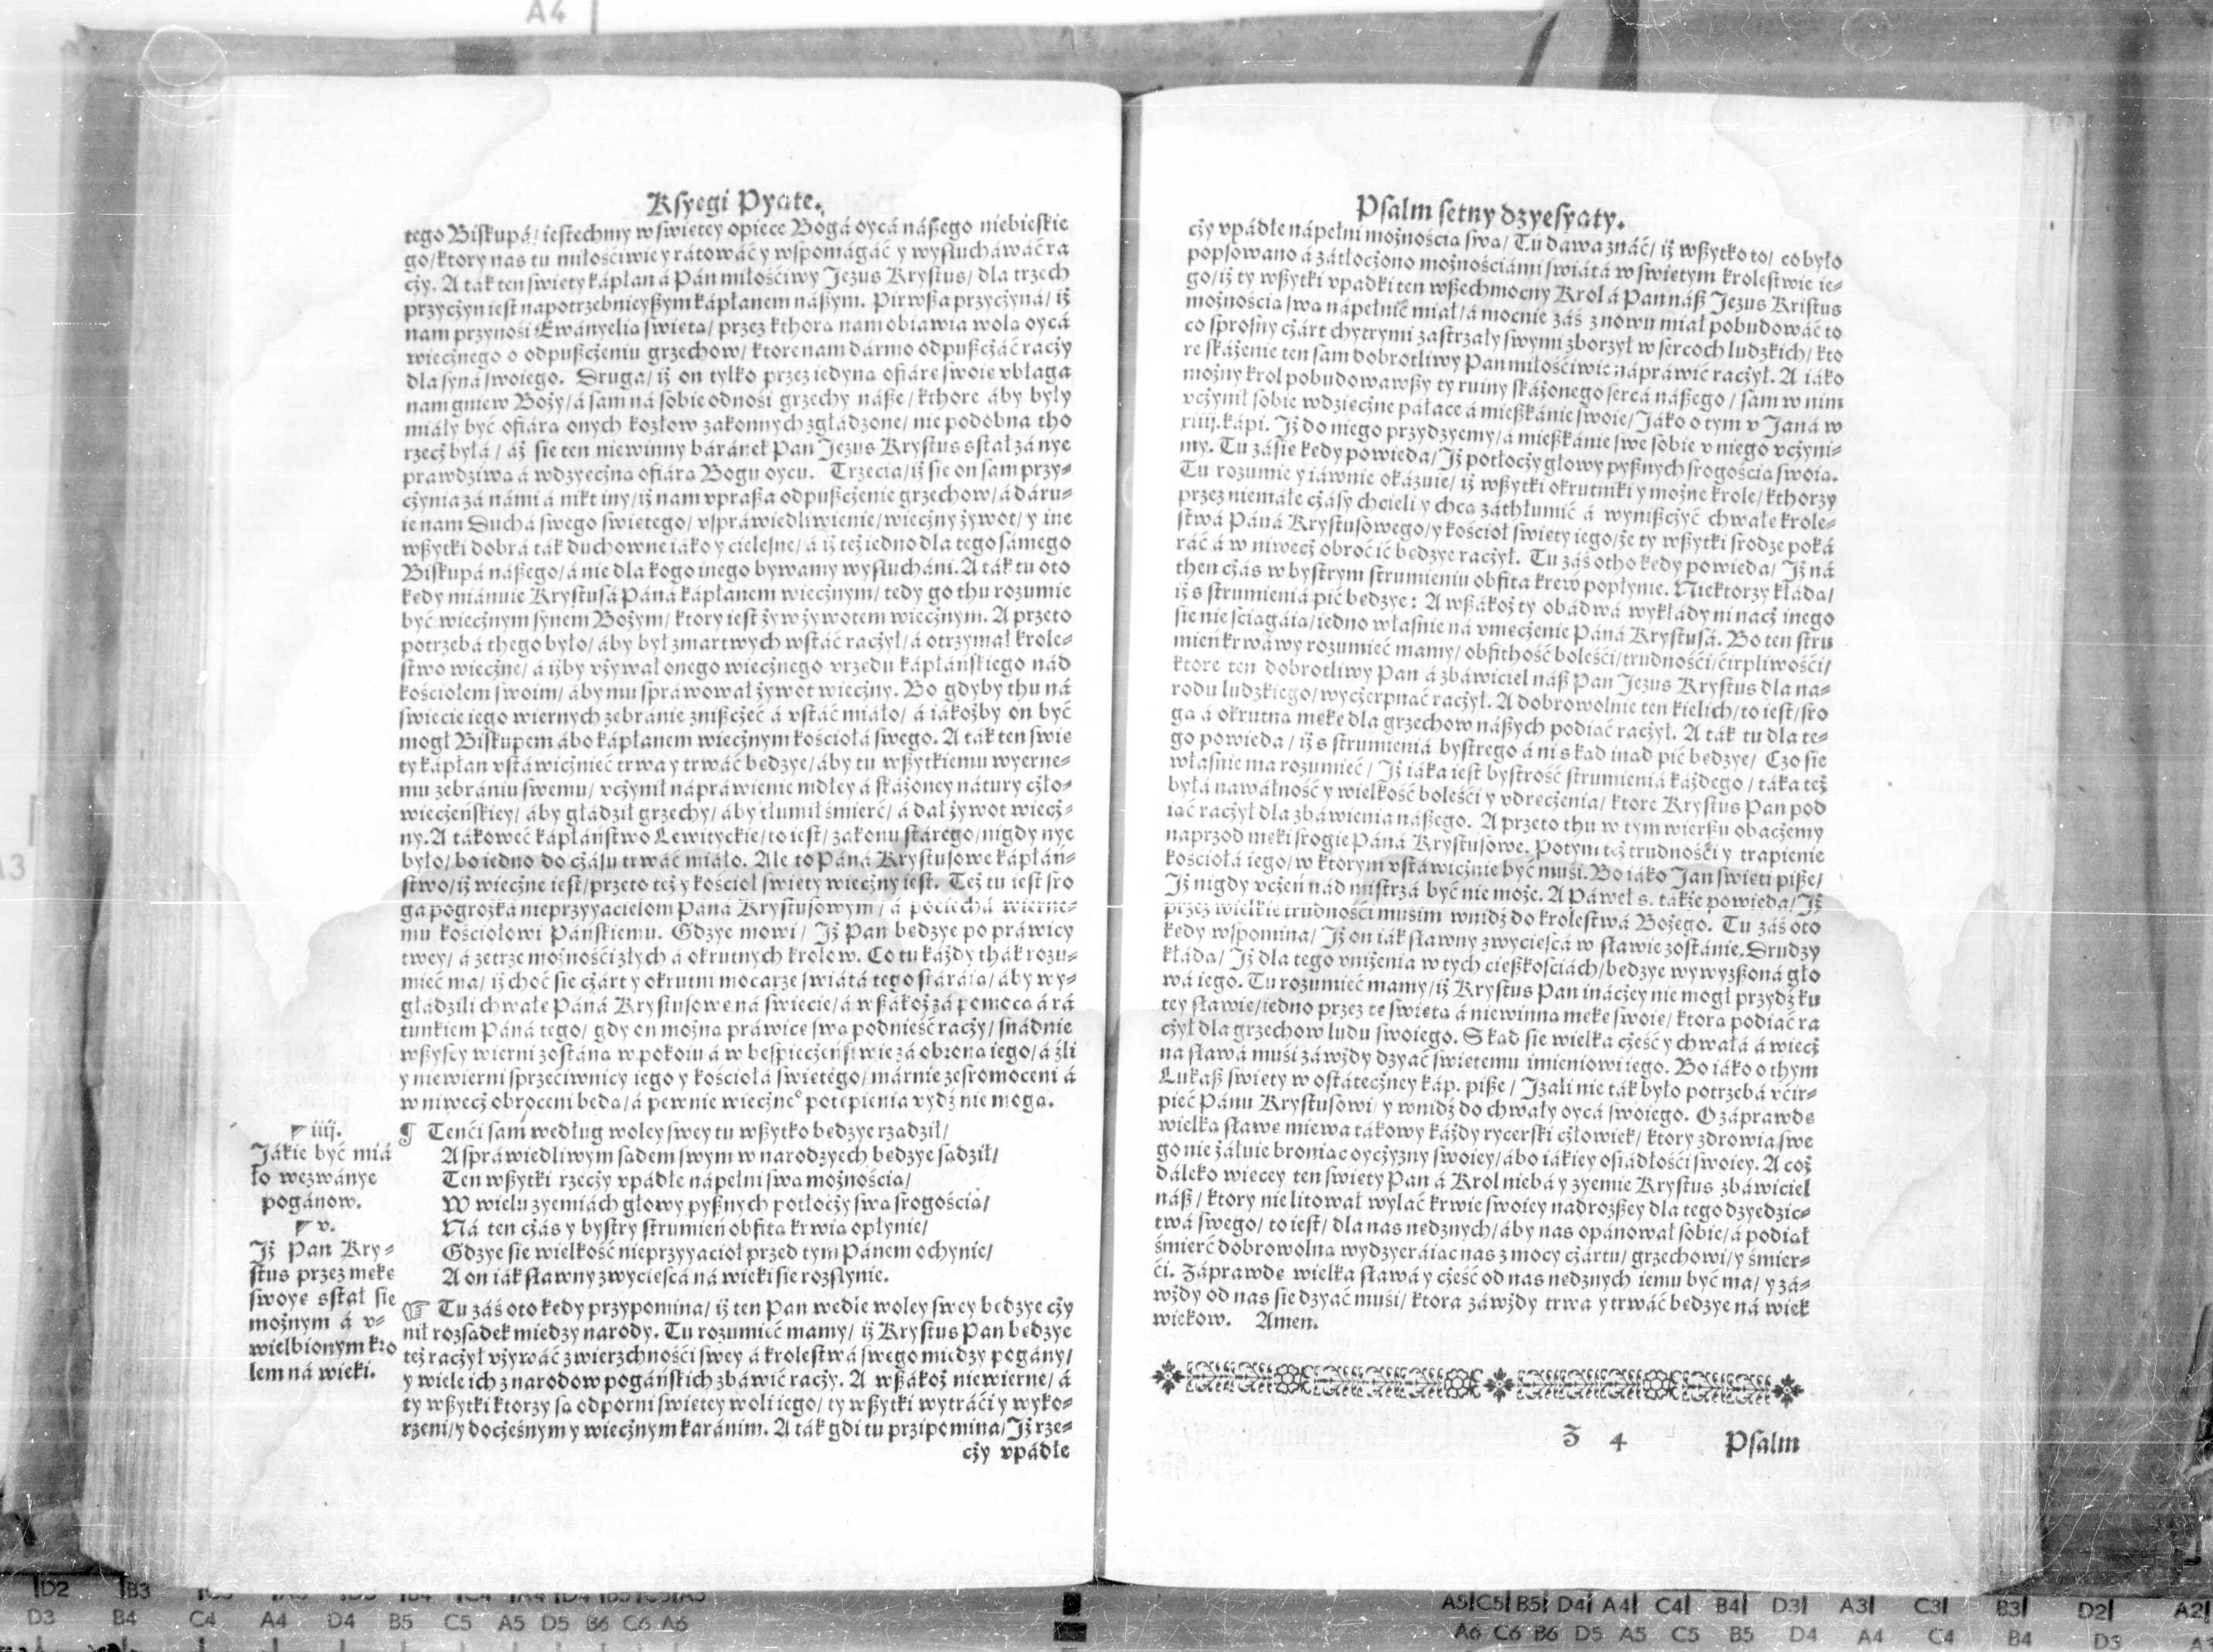 Ksyegi Pyąte.
tego Biskupá/ iestechmy w swiętey opiece Bogá oycá nászego niebieskie
go/ ktory nas tu miłościwie y rátowáć y wspomágáć y wysłucháwáć ra
cży. A ták ten swięty kápłan á Pan miłościwy Jezus Krystus/ dla trzech
przycżyn iest napotrzebnieyszym kápłanem nászym. Pirwsza przycżyná/ iż
nam przynosi Ewányelia swięta/ przez kthora nam obiawia wola oycá
wiecżnego o odpuszcżeniu grzechow/ ktore nam dármo odpuszcżáć racży
dla syná swoiego. Druga/ iż on tylko przez iedyna ofiárę swoię vbłaga
nam gniew Boży/ á sam ná sobie odnosi grzechy násze/ kthore áby były
miáły być ofiára onych kozłow zakonnych zgładzone/ nie podobna tho
rzecż byłá/ áż sie ten niewinny báránek Pan Jezus Krystus sstał zá nye
prawdziwa á wdzyęcżna ofiára Bogu oycu. Trzecia/ iż sie on sam przy-
cżynia zá námi á nikt iny/ iż nam vprasza odpuszcżenie grzechow/ á dáru-
ie nam Duchá swego swiętego/ vspráwiedliwienie/ wiecżny żywot/ y ine
wszytki dobrá ták duchowne iáko y cielesne/ á iż też iedno dla tego sámego
Biskupá nászego/ á nie dla kogo inego bywamy wysłucháni. A ták tu oto
kędy miánuie Krystusá Páná kápłanem wiecżnym/ tedy go thu rozumie
być wiecżnym synem Bożym/ ktory iest żyw żywotem wiecżnym. A przeto
potrzebá thego było/ áby był zmartwych wstáć racżył/ á otrzymał krole-
stwo wiecżne/ á iżby vżywał onego wiecżnego vrzędu kápłáńskiego nád
kościołem swoim/ áby mu spráwował żywot wiecżny. Bo gdyby thu ná
swiecie iego wiernych zebránie zniszcżeć á vstáć miáło/ á iákożby on być
mogł Biskupem ábo kápłanem wiecżnym kościołá swego. A ták ten swię
ty kápłan vstáwicżnieć trwa y trwáć będzye/ áby tu wszytkiemu wyerne-
mu zebrániu swemu/ vcżynił nápráwienie mdłey á skáżoney nátury cżło-
wiecżeńskiey/ áby głádził grzechy/ áby tłumił śmierć/ á dał żywot wiecż-
ny. A tákoweć kápłáństwo Lewityckie/ to iest/ zakonu stárego/ nigdy nye
było/ bo iedno do cżásu trwáć miáło. Ale to Páná Krystusowe kápłáń-
stwo/ iż wiecżne iest/ przeto też y kościoł swięty wiecżny iest. Też tu iest sro
ga pogrożká nieprzyyacielom Páná Krystusowym/ á pociechá wierne-
mu kościołowi Páńskiemu. Gdzye mowi/ Iż Pan będzye po práwicy
twey/ á zetrze możności złych á okrutnych krolow. Co tu káżdy thák rozu-
mieć ma/ iż choć sie cżárt y okrutni mocarze swiátá tego stáráią/ áby wy-
głádzili chwałę Páná Krystusowę ná swiecie/ á wszákoż zá pomocą á rá
tunkiem Páná tego/ gdy on można práwicę swa podnieść racży/ snádnie
wszyscy wierni zostána w pokoiu á w bespiecżeństwie zá obrona iego/ á źli
y niewierni sprzeciwnicy iego y kościołá swiętego/ márnie zesromoceni á
w niwecż obroceni będa/ á pewnie wiecżne° potępienia vydź nie moga.
iiij.
Jákie być miá
ło wezwánye
pogánow.
v.
Iż Pan Kry-
stus przez mękę
swoyę sstał sie
możnym á v-
wielbionym kro
lem ná wieki.
¶ Tenći sam według woley swey tu wszytko będzye rzadził/
A spráwiedliwym sądem swym w narodzyech będzye sądził/
Ten wszytki rzecży vpádłe nápełni swa możnościa/
W wielu zyemiách głowy pysznych potłocży swa srogościa/
Ná ten cżás y bystry strumień obfita krwia opłynie/
Gdzye sie wielkość nieprzyyacioł przed tym Pánem ochynie/
A on iák sławny zwycięscá ná wieki sie rozsłynie.
☞ Tu záś oto kędy przypomina/ iż ten Pan wedle woley swey będzye cży
nił rozsądek między narody. Tu rozumieć mamy/ iż Krystus Pan będzye
też racżył vżywáć zwierzchności swey á krolestwá swego między pogány/
y wiele ich z narodow pogáńskich zbáwić racży. A wszákoż niewierne/ á
ty wszytki ktorzy są odporni swiętey woli iego/ ty wszytki wytráći y wyko-
rzeni/ y docżesnym y wiecżnym karánim. A ták gdi tu przipomina/ Iż rze-
cży vpádłe
Psalm setny dzyesyąty.
cży vpádłe nápełni możnościa swa/ Tu dawa znáć/ iż wszytko to/ co było
popsowano á zátłocżono możnościámi swiátá w swiętym krolestwie ie-
go/ iż ty wszytki vpadki ten wszechmocny Krol á Pan nász Jezus Kristus
możnościa swa nápełnić miał/ á mocnie záś z nowu miał pobudowáć to
co sprosny cżárt chytrymi zastrzały swymi zborzył w sercoch ludzkich/ kto
re skáżenie ten sam dobrotliwy Pan miłościwie nápráwić racżył. A iáko
możny krol pobudowawszy ty ruiny skáżonego sercá nászego/ sam w nim
vcżynił sobie wdzięcżne páłace á mieszkánie swoie/ Jáko o tym v Janá w
xiiij. kápi. Iż do niego przydzyemy/ á mieszkánie swe sobie v niego vcżyni-
my. Tu zásię kędy powieda/ Iż potłocży głowy pysznych srogościa swoia.
Tu rozumie y iáwnie okázuie/ iż wszytki okrutniki y możne krole/ kthorzy
przez niemáłe cżásy chcieli y chca záthłumić á wyniszcżyć chwałę krole-
stwá Páná Krystusowego/ y kościoł swięty iego/ że ty wszytki srodze poká
ráć á w niwecż obrocić będzye racżył. Tu záś otho kędy powieda/ Iż ná
then cżás w bystrym strumieniu obfita krew popłynie. Niektorzy kłáda/
iż s strumieniá pić będzye: A wszákoż ty obádwá wykłády ni nacż inego
sie nie ściągáia/ iedno własnie ná vmęcżenie Páná Krystusá. Bo ten stru
mień krwáwy rozumieć mamy/ obfithość boleści/ trudności/ cirpliwości/
ktore ten dobrotliwy Pan á zbáwiciel nász Pan Jezus Krystus dla na-
rodu ludzkiego/ wycżerpnáć racżył. A dobrowolnie ten kielich/ to iest/ sro
ga á okrutna mękę dla grzechow nászych podiąć racżył. A ták tu dla te-
go powieda/ iż s strumieniá bystrego á ni skąd inąd pić będzye/ Czo sie
własnie ma rozumieć/ Iż iáka iest bystrość strumieniá káżdego/ táka też
byłá nawáłność y wielkość boleści y vdręcżenia/ ktore Krystus Pan pod
iąć racżył dla zbáwienia nászego. A przeto thu w tym wierszu obacżemy
naprzod męki srogie Páná Krystusowe. Potym też trudności y trapienie
kościołá iego/ w ktorym vstáwicżnie być musi. Bo iáko Jan swięti pisze/
Iż nigdy vcżeń nád mistrzá być nie może. A Páweł s. także powieda/ Iż
przez wielkie trudności musim wnidź do krolestwá Bożego. Tu záś oto
kędy wspomina/ Iż on iák sławny zwycięscá w sławie zostánie. Drudzy
kłáda/ Iż dla tego vniżenia w tych cięszkościách/ będzye wywyższoná gło
wá iego. Tu rozumieć mamy/ iż Krystus Pan inácżey nie mogł przydź ku
tey sławie/ iedno przez tę swięta á niewinna mękę swoię/ ktora podiąć ra
cżył dla grzechow ludu swoiego. Skąd sie wielka cżeść y chwałá á wiecż
na sławá musi záwżdy dzyać swiętemu imieniowi iego. Bo iáko o thym
Lukasz swięty w ostátecżney káp. pisze/ Izali nie ták było potrzebá vcir-
pieć Pánu Krystusowi/ y wnidź do chwały oycá swoiego. O záprawdę
wielka sławę miewa tákowy káżdy rycerski cżłowiek/ ktory zdrowia swe
go nie żáłuie broniac oycżyzny swoiey/ ábo iákiey osiádłości swoiey. A coż
dáleko więcey ten swięty Pan á Krol niebá y zyemie Krystus zbáwiciel
nász/ ktory nie litował wyláć krwie swoiey nadroższey dla tego dzyedzic-
twá swego/ to iest/ dla nas nędznych/ áby nas opánował sobie/ á podiął
śmierć dobrowolna wydzyeráiac nas z mocy cżártu/ grzechowi/ y śmier-
ći. Záprawdę wielka sławá y cżeść od nas nędznych iemu być ma/ y zá-
wżdy od nas sie dzyać musi/ ktora záwżdy trwa y trwáć będzye ná wiek
wiekom. Amen.
Z 4
Psalm